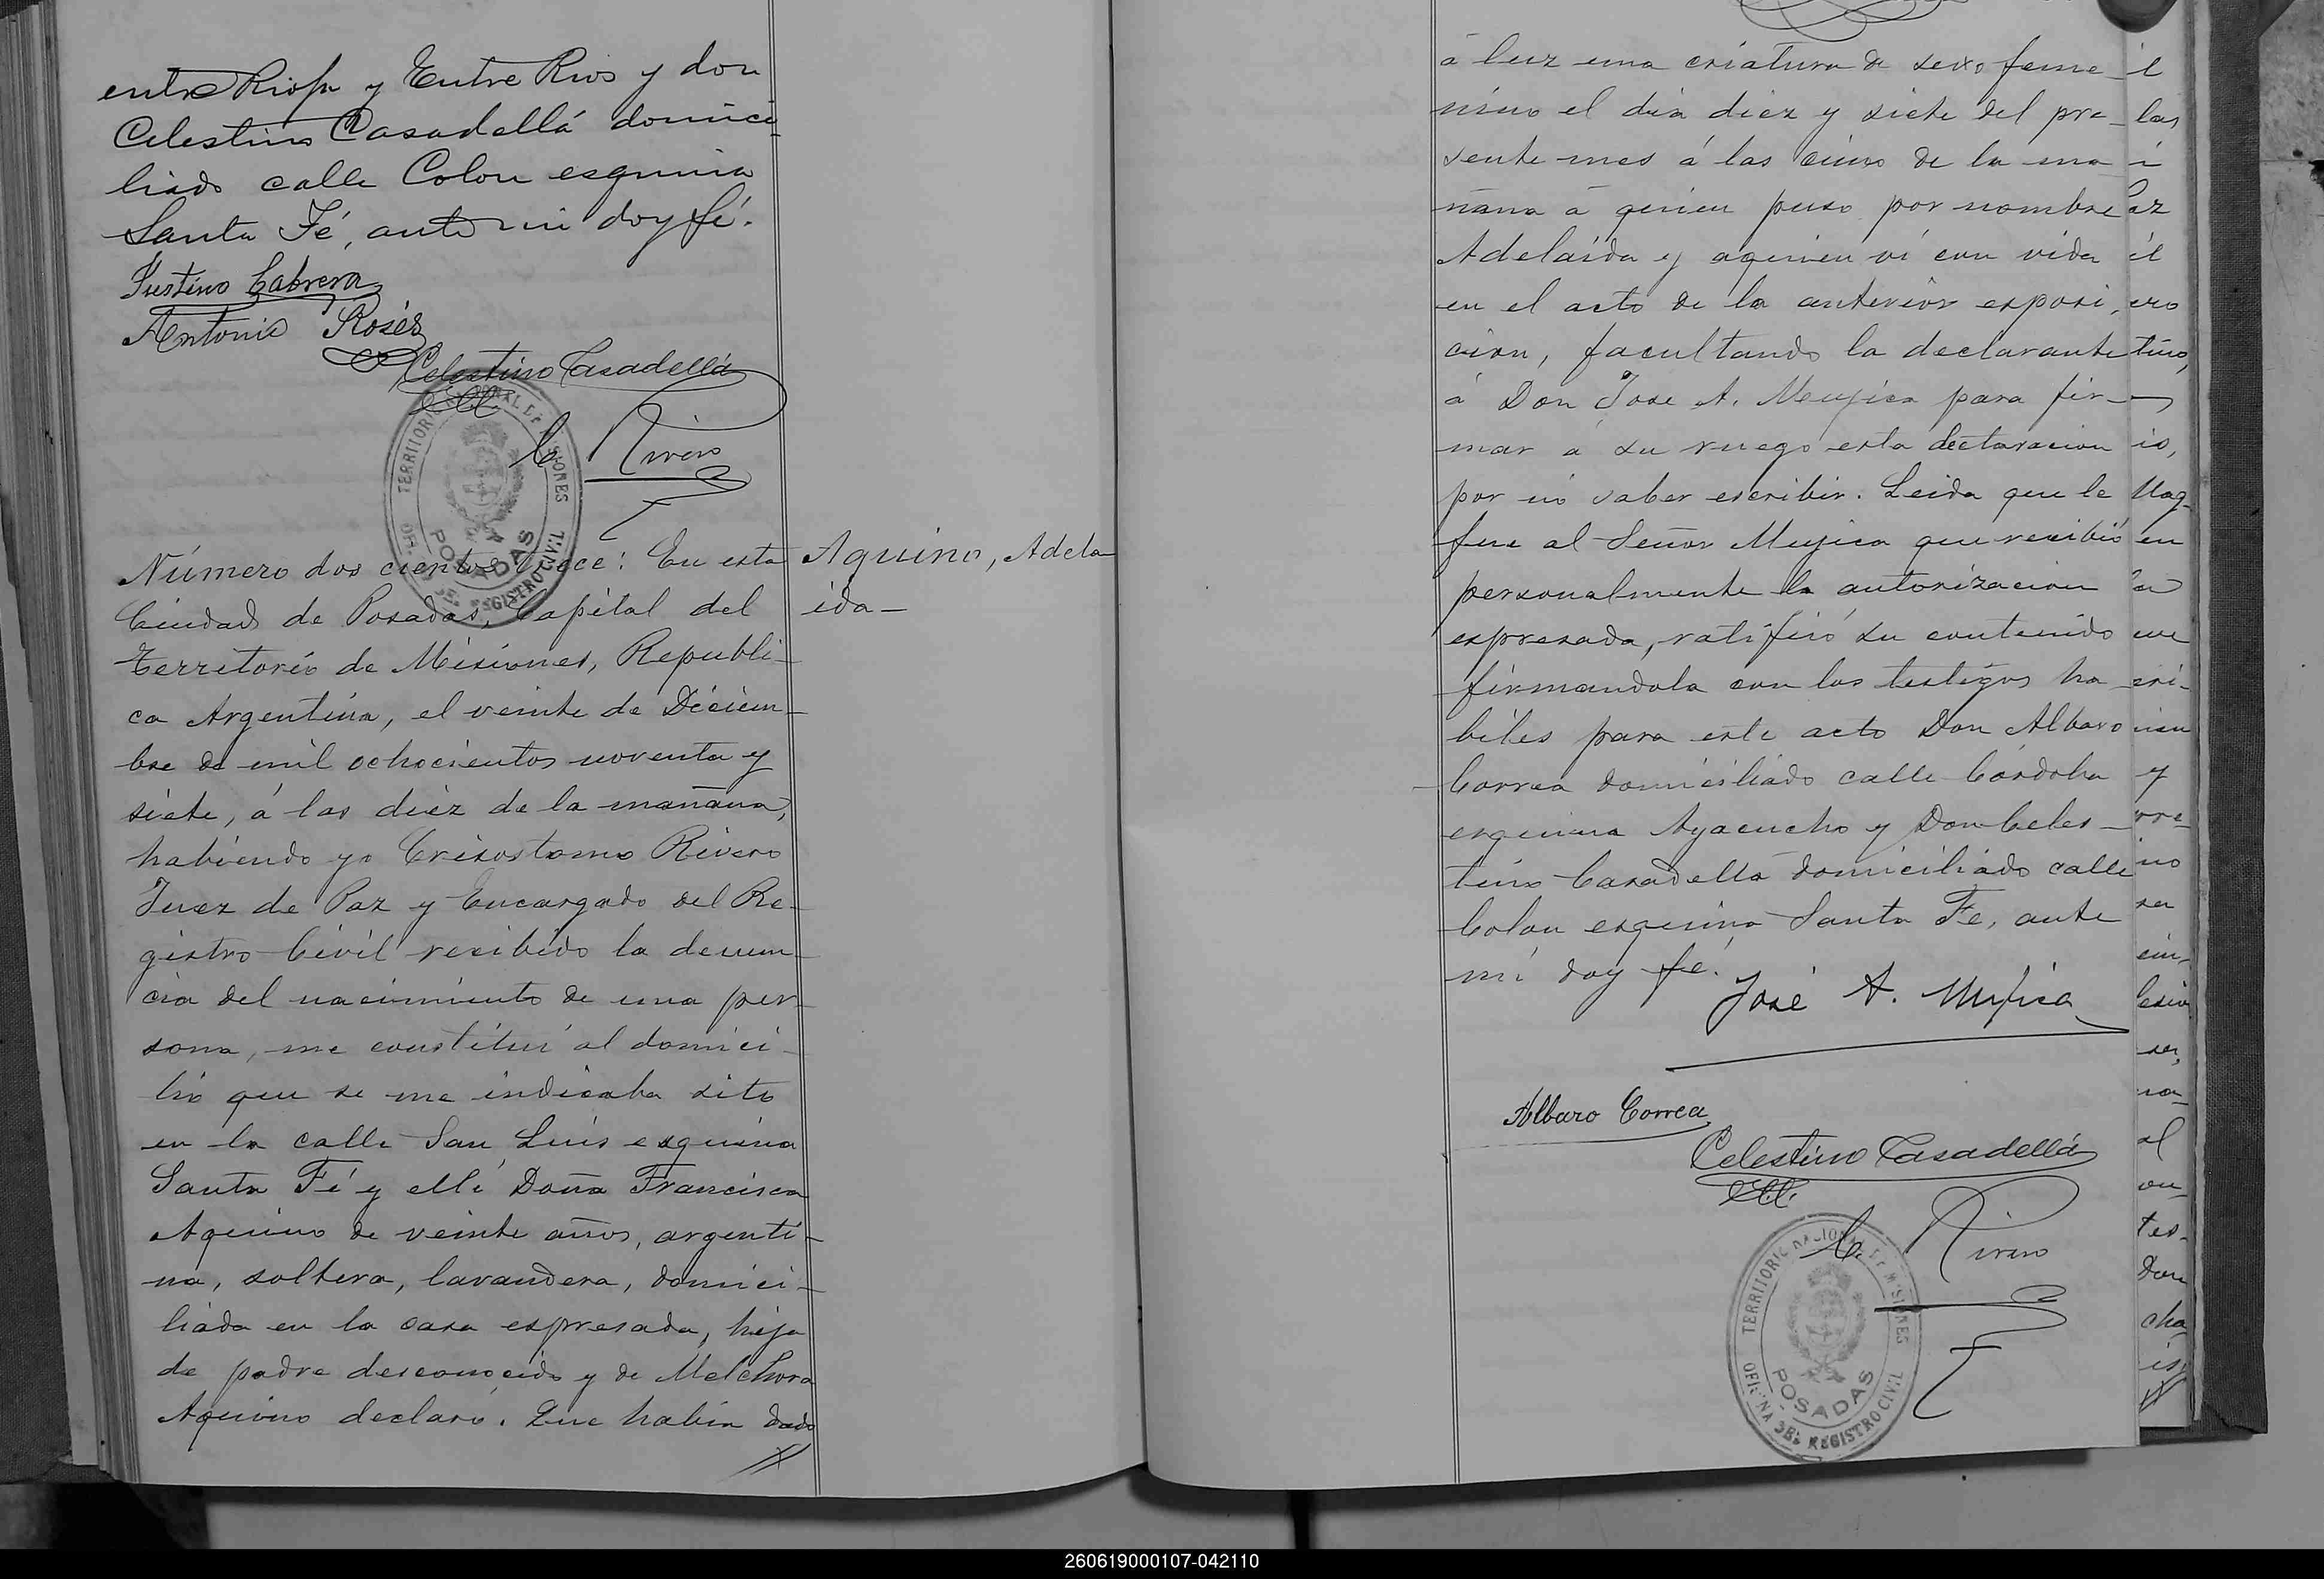 entre Rioja y Entre Rios y don
Celestino Casadellá domici-
liado calle Colon esquina
Santa Fé, ante mi doy fé.
Justino Cabrera
Antonio Rosés
Celestino Casadellá
C. Rivero
TERRITORIO NACIONAL DE MISIONES
POSADAS
OFICINA DEL REGISTRO CIVIL
Número dos cientos trece: En esta
Ciudad de Posadas, Capital del
Territorio de Misiones, Republi-
ca Argentina, el veinte de Diciem-
bre de mil ochocientos noventa y
siete, á las diez de la mañana,
habiendo yo Crisostomo Rivero
Juez de Paz y Encargado del Re-
gistro Civil recibido la denun-
cia del nacimiento de una per-
sona, me constituí al domici-
lio que se me indicaba sito
en la calle San Luis esquina
Santa Fé y allí Doña Francisca
Aquino de veinte años, argenti-
na, soltera, lavandera, domici-
liada en la casa espresada, hija
de padre desconocido y de Melchora
Aquino declaró: Que habia dado
Aquino, Adela-
ida-
á luz una criatura de sexo feme-
nino el dia diez y siete del pre-
sente mes á las cinco de la ma-
ñana á quien puso por nombre
Adelaida y aquien ví con vida
en el acto de la anterior esposi-
cion, facultando la declarante
á Don Jose A. Mujica para fir-
mar á su ruego esta declaracion
por nó saber escribir. Leida que le
fue al Señor Mujica que recibió
personalmente la autorizacion
espresada, ratificó su contenido
firmandola con los testigos ha-
biles para este acto Don Albaro
Correa domiciliado calle Córdoba
esquina Ayacucho y Don Celes-
tino Casadellá domiciliado calle
Colon esquina Santa Fe, ante
mí doy fé.
José A. Mujica
Albaro Correa
Celestino Casadellá
C. Rivero
TERRITORIO NACIONAL DE MISIONES
POSADAS
OFICINA DEL REGISTRO CIVIL
el
las
az
el
ero
tino,
io,
en
la
y
no
sa
al
tes-
Don
cha
260619000107-042110